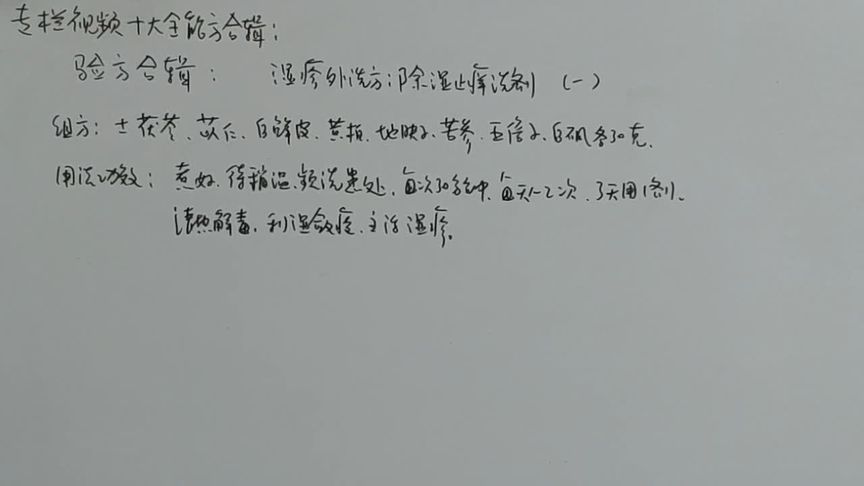 专栏视频十大全能方合辑：
验方合辑： 湿疹外洗方：除湿止痒洗剂（一）
组方：土茯苓、苡仁、白鲜皮、黄柏、地肤子、苦参、五倍子、白矾各30克。
用法功效：煮好、待稍温、频洗患处、每次30分钟、每天1~2次、3天用1剂。
清热解毒，利湿敛疮、主治湿疹。